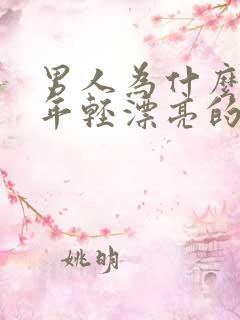 男人為什麼
年輕漂亮的
姚明